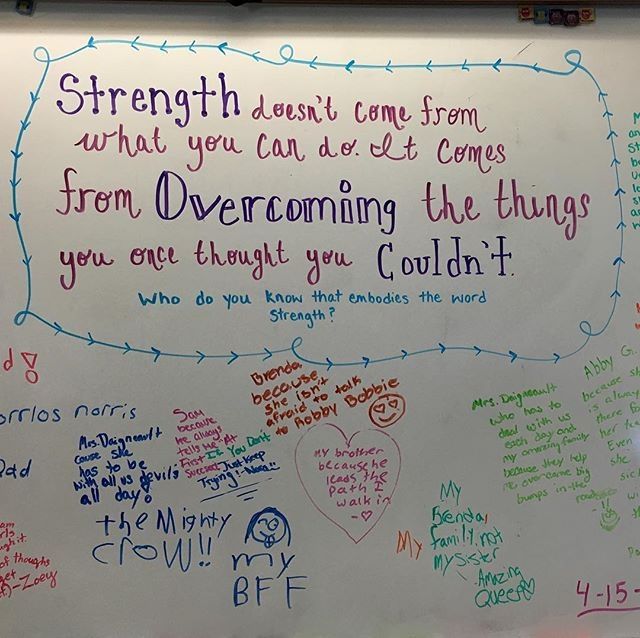 Strength doesn't come from
what you can do. It comes
from Overcoming the things
you once thought you Couldn't.
Who do you know that embodies the word
Strength?
norris
Mrs. Daigneault
cause she
has to be
with all us devils
all day!
Sam
because
he always
tells me, At
First If You Don't
Succeed, Just Keep
Trying!
Brenda
because
she isn't
afraid to talk
to Robby Bobbie
My brother
because he
leads the
path I
walk in
the Mighty
CROW!!
my
BFF
My
My
Brenda,
family, not
My Sister
Amazing
Queen
Mrs. Daigneault
who has to
deal with us
each day and
my amazing family
because they help
me overcome big
bumps in the
Abby G.
because she
is always
there
Even
she
-Zoey
4-15-